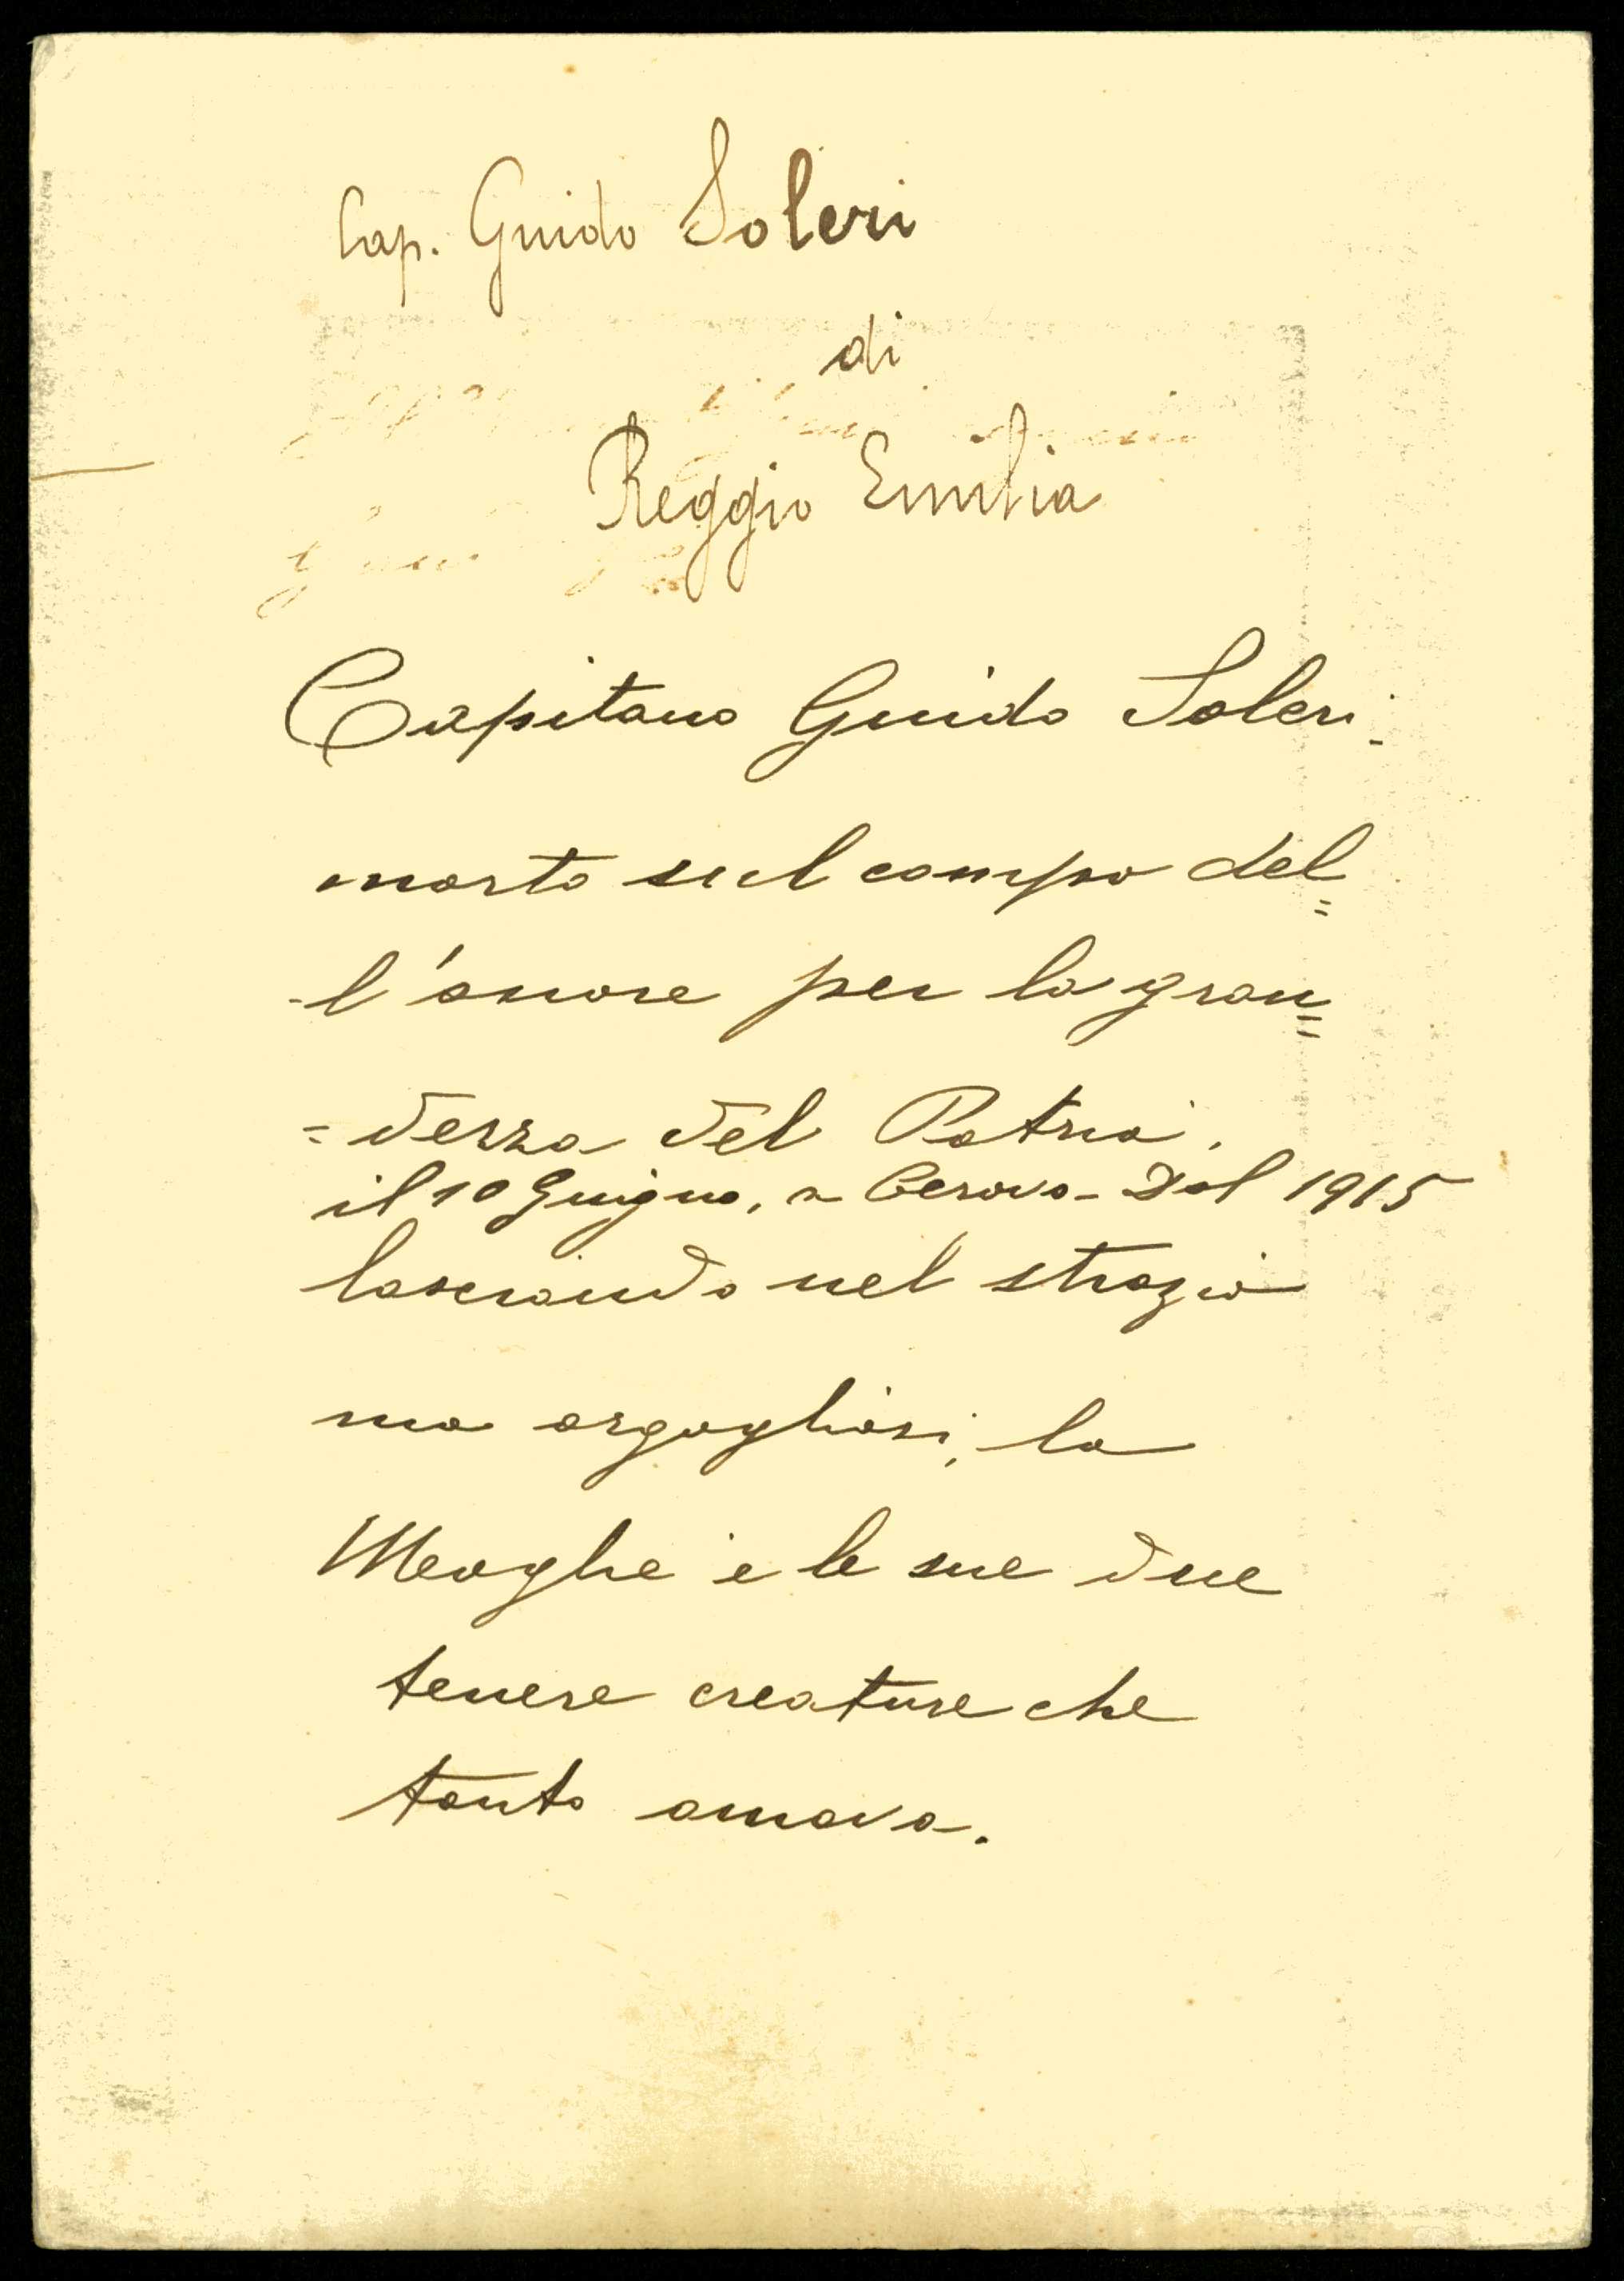 Cap. Guido Soleri
di
Reggio Emilia
Capitano Guido Soleri.
morto sul campo del=
-l'onore per la gran=
=dezza del Patria.
il 10 Guigno, a Cerovo- Dol 1915
lasciando nel strazio
ma orgogliosi, la
Moaglie e le sue due
tenere creature che
tanto amava.